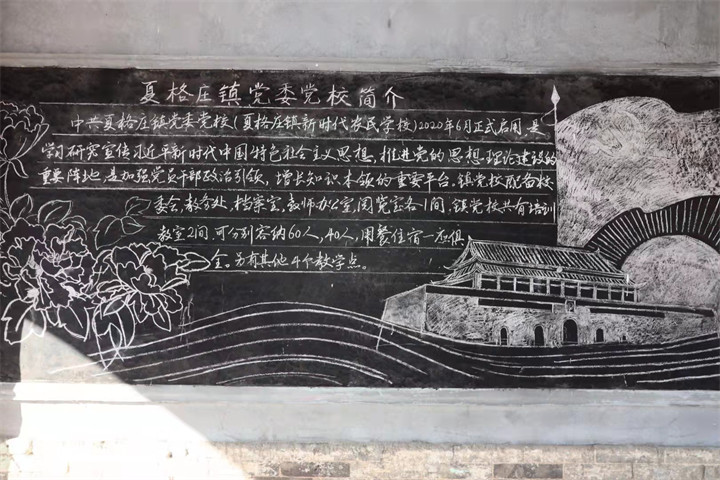 夏格庄镇党委党校简介
中共夏格庄镇党委党校(夏格庄镇新时代农民学校)2020年6月正式启用,是
学习研究宣传习近平新时代中国特色社会主义思想,推进党的思想理论建设的
重要阵地,是加强党员干部政治引领,增长知识本领的重要平台。镇党校配备校
委会,教务处,档案室,教师办公室,阅览室各1间,镇党校共有培训
教室2间,可分别容纳60人,40人,用餐住宿一应俱
全。另有其他4个教学点。